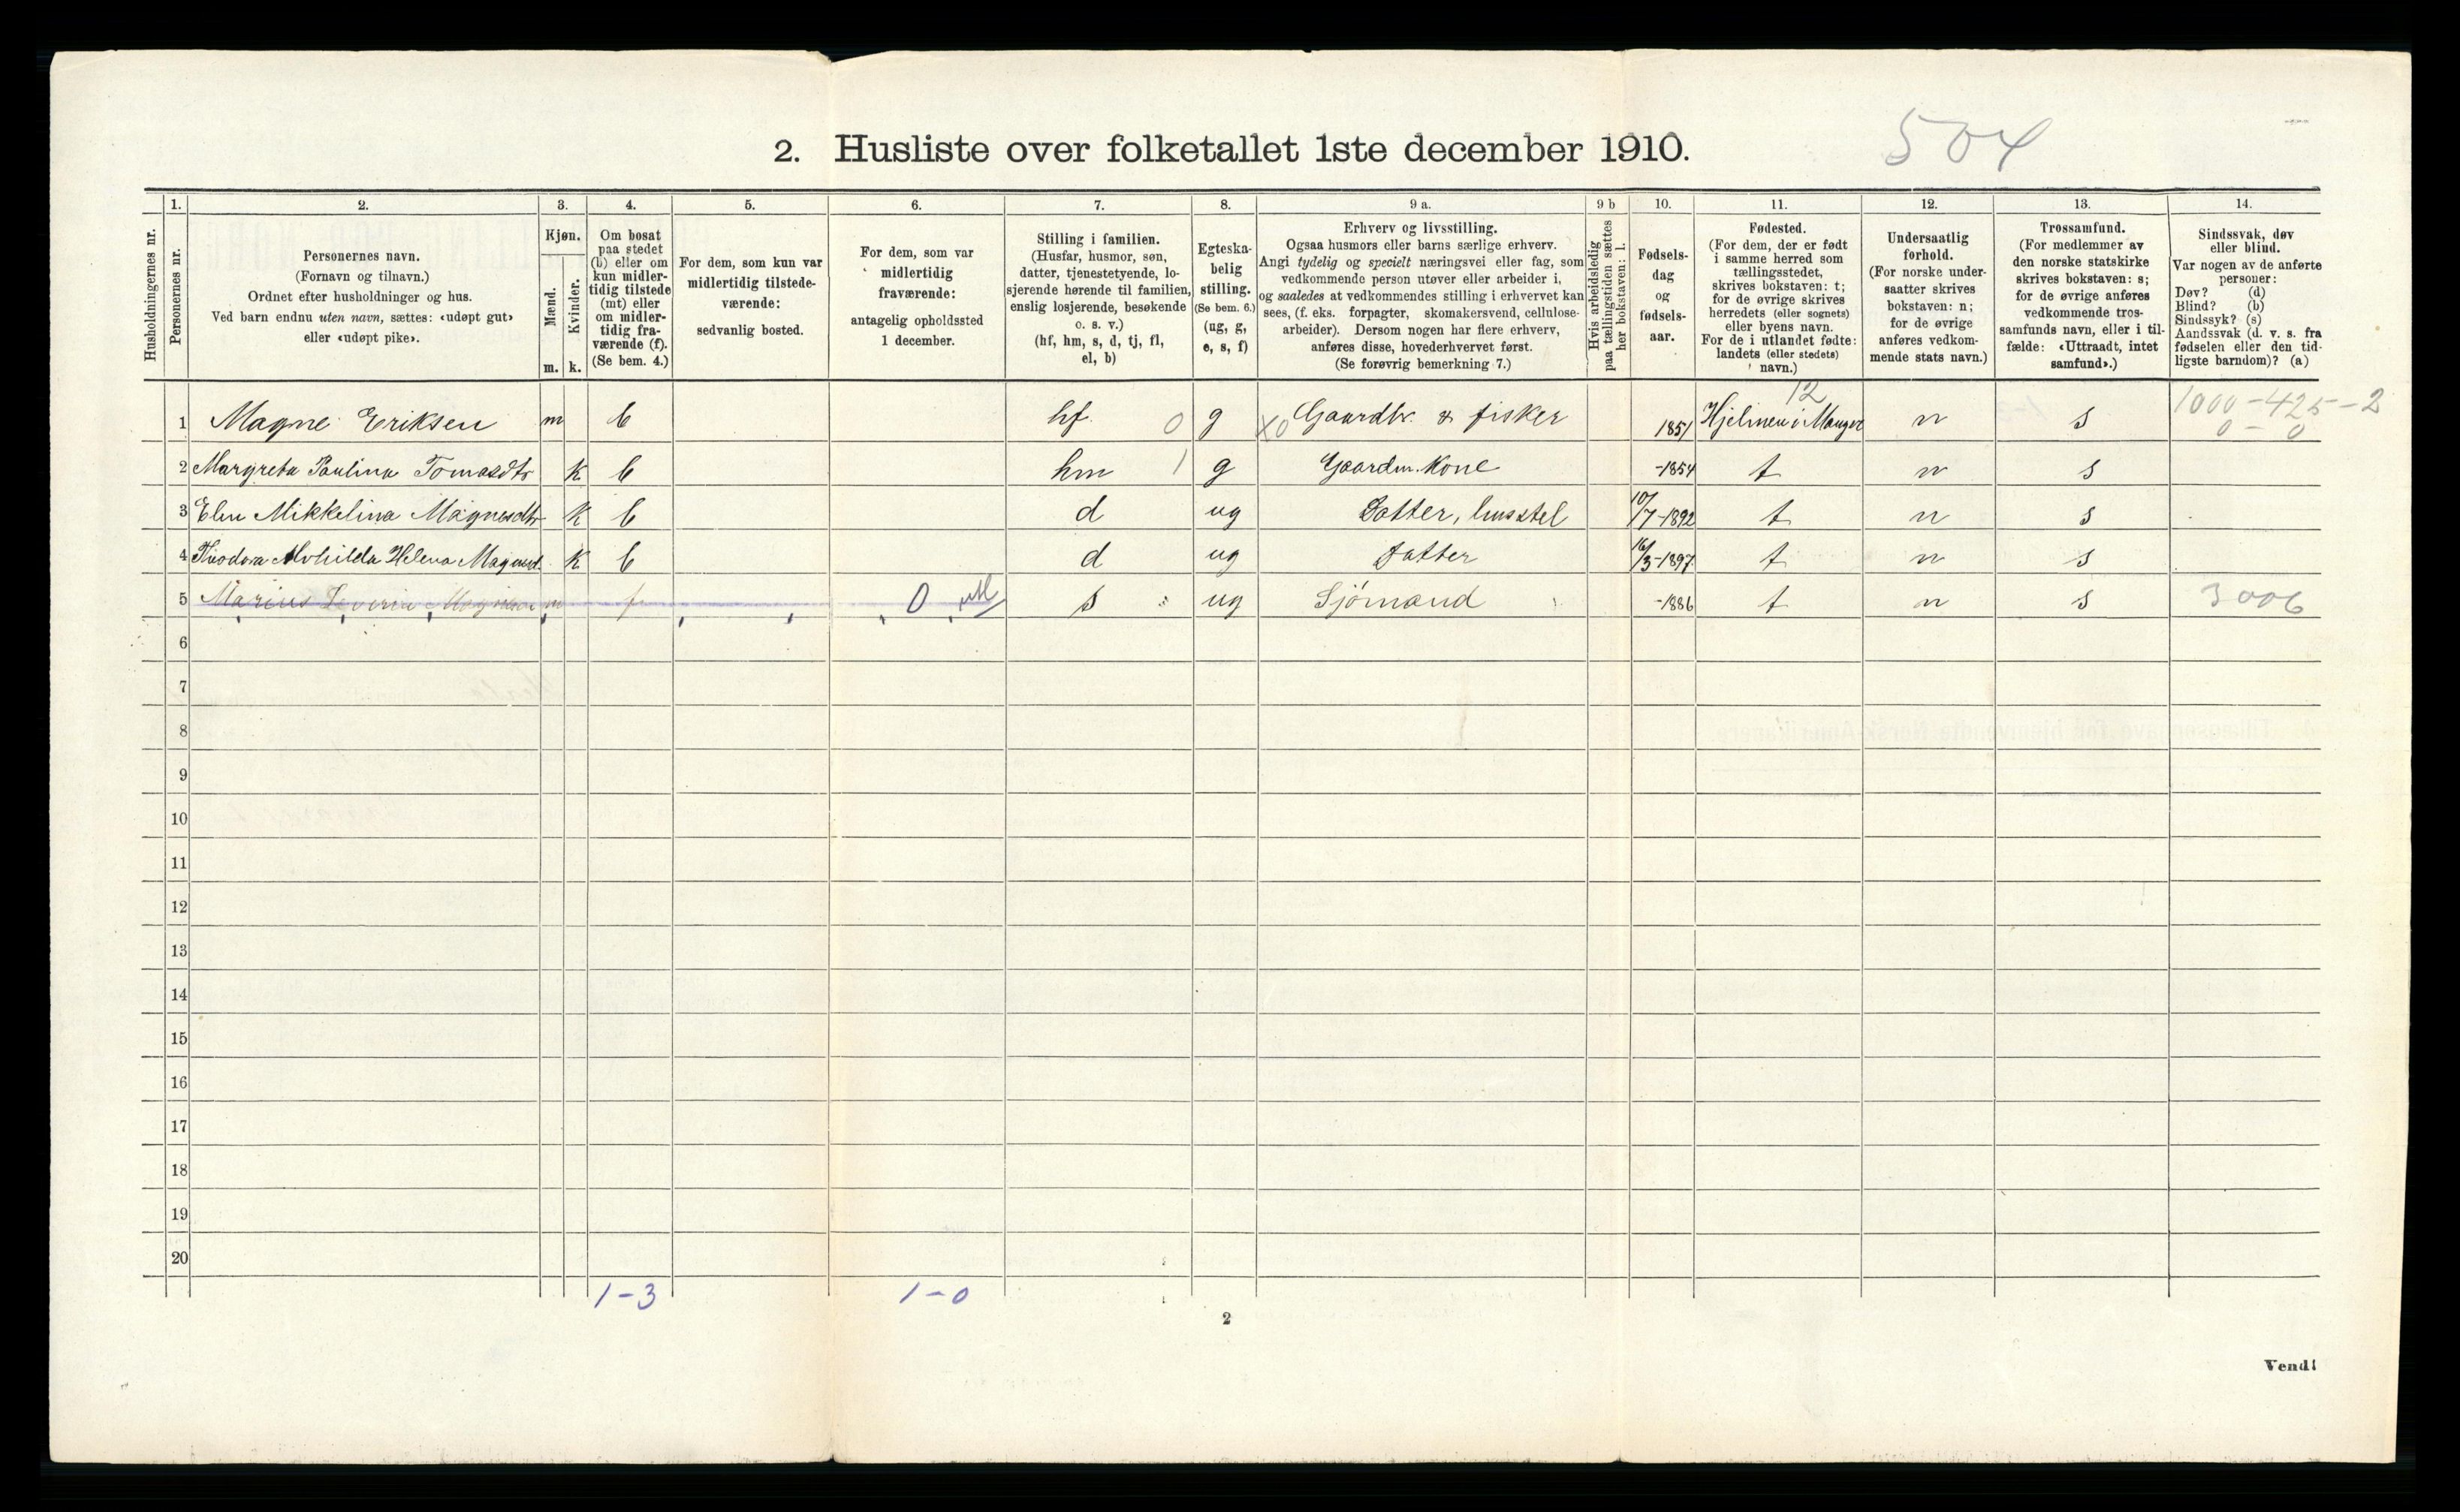 2. Husliste over folketallet 1ste december 1910.
504
Husholdningernes nr.
1.
Personernes nr.
2.
Personernes navn.
(Fornavn og tilnavn.)
Ordnet efter husholdninger og hus.
Ved barn endnu uten navn, sættes: «udøpt gut»
eller «udøpt pike».
3.
Kjøn.
Mænd.
Kvinder.
m. k.
4.
Om bosat
paa stedet
(b) eller om
kun midler-
tidig tilstede
(mt) eller
om midler-
tidig fra-
værende (f).
(Se bem. 4.)
5.
For dem, som kun var
midlertidig tilstede-
værende:
sedvanlig bosted.
6.
For dem, som var
midlertidig
fraværende:
antagelig opholdssted
1 december.
7.
Stilling i familien.
(Husfar, husmor, søn,
datter, tjenestetyende, lo-
sjerende hørende til familien,
enslig losjerende, besøkende
o. s. v.)
(hf, hm, s, d, tj, fl,
el, b)
8.
Egteska-
belig
stilling.
(Se bem. 6.)
(ug, g,
e, s, f)
9 a.
Erhverv og livsstilling.
Ogsaa husmors eller barns særlige erhverv.
Angi tydelig og specielt næringsvei eller fag, som
vedkommende person utøver eller arbeider i,
og saaledes at vedkommendes stilling i erhvervet kan
sees, (f. eks. forpagter, skomakersvend, cellulose-
arbeider). Dersom nogen har flere erhverv,
anføres disse, hovederhvervet først.
(Se forøvrig bemerkning 7.)
9 b
Hvis arbeidsledig
paa tællingstiden sættes
her bokstaven: l.
10.
Fødsels-
dag
og
fødsels-
aar.
11.
Fødested.
(For dem, der er født
i samme herred som
tællingsstedet,
skrives bokstaven: t;
for de øvrige skrives
herredets (eller sognets)
eller byens navn.
For de i utlandet fødte:
landets (eller stedets)
navn.)
12.
Undersaatlig
forhold.
(For norske under-
saatter skrives
bokstaven: n;
for de øvrige
anføres vedkom-
mende stats navn.)
13.
Trossamfund.
(For medlemmer av
den norske statskirke
skrives bokstaven: s;
for de øvrige anføres
vedkommende tros-
samfunds navn, eller i til-
fælde: «Uttraadt, intet
samfund».)
14.
Sindssvak, døv
eller blind.
Var nogen av de anførte
personer:
Døv? (d)
Blind? (b)
Sindssyk? (s)
Aandssvak (d. v. s. fra
fødselen eller den tid-
ligste barndom)? (a)
12 1000-425-2
1 Magne Eriksen m b hf 0 g X0 Gaardbr. & fisker 1851 Hjelmen i Manger n s 0-0
2 Margreta Paulina Tomasdtr k b hm 1 g Gaardm. Kone -1854 t n s
3 Elen Mikkelina Magnesdtr k b d ug Datter, husstel 10/7-1892 t n s
4 Teodora Helena Magnesd. k b d ug Datter 16/3-1897 t n s
5 Marius m f 0 utl s ug Sjømand -1886 t n s 3006
6
7
8
9
10
11
12
13
14
15
16
17
18
19
20
1-3 1-0
2
Vend!